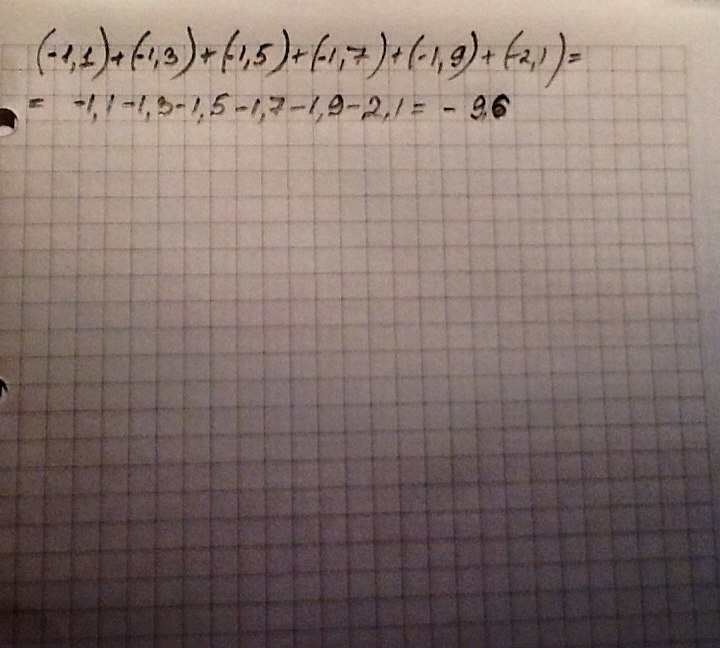 (-1,1)+(-1,3)+(-1,5)+(-1,7)+(-1,9)+(-2,1)=
= -1,1-1,3-1,5-1,7-1,9-2,1= - 9,6